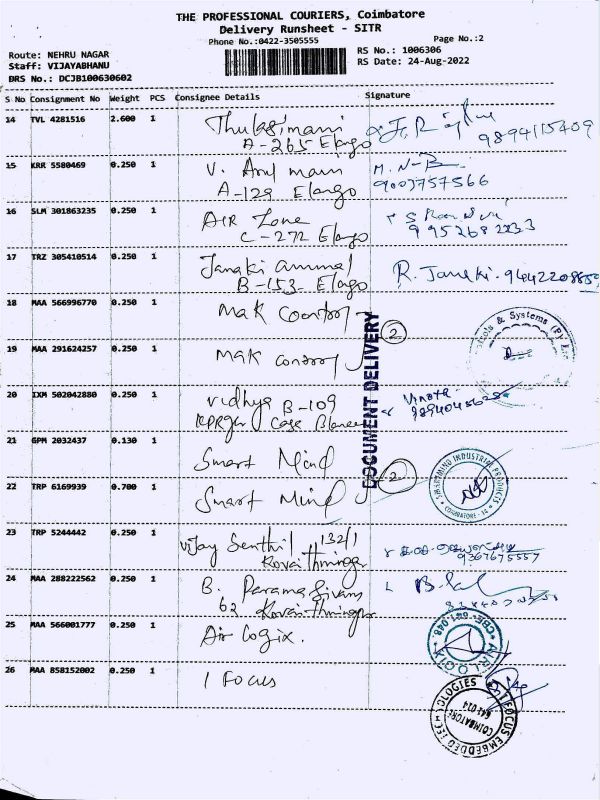 THE PROFESSIONAL COURIERS, Coimbatore
Delivery Runsheet - SITR
Phone No.:0422-3505555
Page No.:2
Route: NEHRU NAGAR
RS No.: 1006306
Staff: VIJAYABHANU
RS Date: 24-Aug-2022
DRS No.: DCJB100630602
S No Consignment No Weight PCS Consignee Details Signature
14 TVL 4281516 2.600 1 Thulasimani
A-265 Elango 9894115409
15 KRR 5580469 0.250 1 V. Arul mani M. N-B
A-129 Elango 9003757566
16 SLM 301863235 0.250 1 AIR Zone
C-272 Elango
17 TRZ 305410514 0.250 1 Janaki ammal R. Janaki. 9442208859
B-153 Elango
18 MAA 566996770 0.250 1 Mak Control 2
& Systems (P) L
19 MAA 291624257 0.250 1 Mak Control
DOCUMENT DELIVERY
20 IXM 502042880 0.250 1 Vidhya B-109
Casa Blanca
21 GPM 2032437 0.130 1 Smart Mind
22 TRP 6169939 0.700 1 Smart Mind 2
INDUSTRIAL PRODUCTS
COIMBATORE - 14
23 TRP 5244442 0.250 1 Vijay Senthil 132/1
Kovai Thirunagar 9367675557
24 MAA 288222562 0.250 1 B. Paramasivam
62 Kovai-Thirunagar
25 MAA 566001777 0.250 1 Air Logix.
CBE-641 048
AIRLOGIX
26 MAA 858152002 0.250 1 I Focus
I FOCUS EMBEDDED TECHNOLOGIES
COIMBATORE
641 014